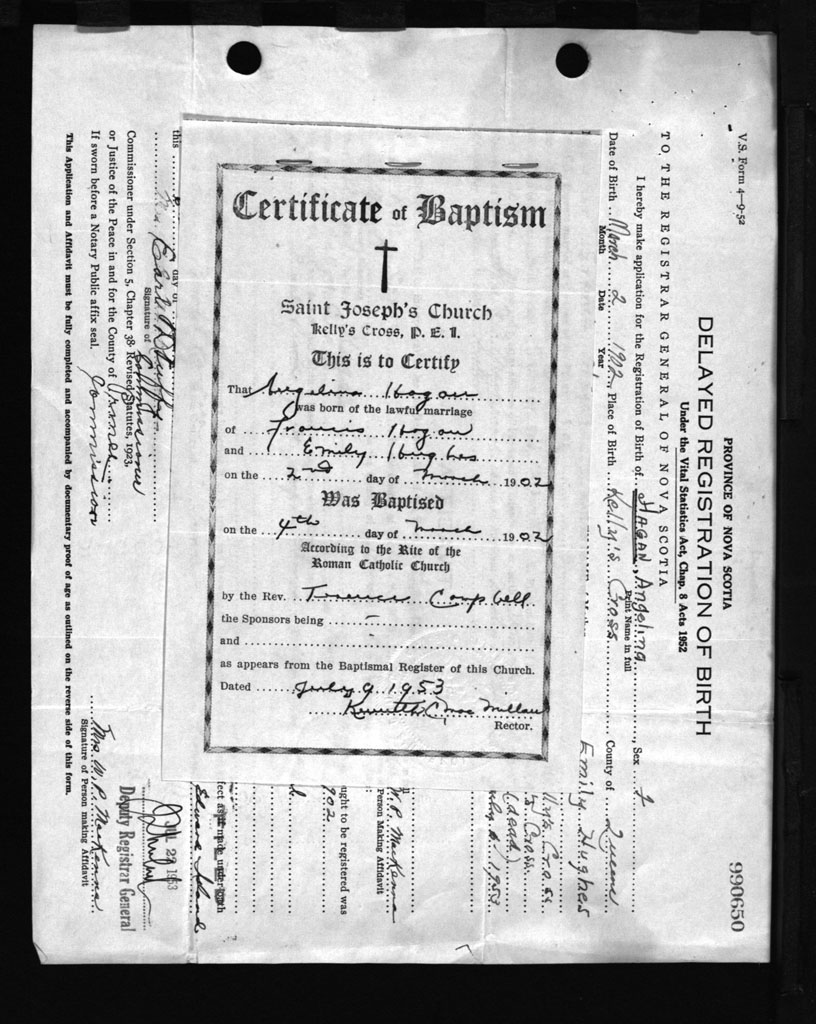 Certificate of Baptism
Saint Joseph's Church
Kelly's Cross, P. E. I.
This is to Certify
That Angelina Hogan
was born of the lawful marriage
of Francis Hogan
and Emily Hughes
on the 2nd day of March 1902
Was Baptised
on the 4th day of March 1902
According to the Rite of the
Roman Catholic Church
by the Rev. Terence Campbell
the Sponsors being —
and
as appears from the Baptismal Register of this Church.
Dated July 9 1953
Kenneth C. MacMillan
Rector.
V.S. Form 4-9-52
990650
PROVINCE OF NOVA SCOTIA
DELAYED REGISTRATION OF BIRTH
Under the Vital Statistics Act, Chap. 8 Acts 1952
TO THE REGISTRAR GENERAL OF NOVA SCOTIA
I hereby make application for the Registration of Birth of HAGAN, Angelina, Sex F
Print Name in full
Date of Birth March 2 1902, Place of Birth Kelly's Cross County of Queens
Month Date Year
Emily Hughes
Cross
(dead)
1953
W. P. MacKenna
Person Making Affidavit
ught to be registered was
902
fect as if made under oath
Edward Island
this day of
Signature of
Commissioner under Section 5, Chapter 38 Revised Statutes, 1923,
or Justice of the Peace in and for the County of Prince
If sworn before a Notary Public affix seal.
Commission
Mrs. W. P. MacKenna
Signature of Person making Affidavit
This Application and Affidavit must be fully completed and accompanied by documentary proof of age as outlined on the reverse side of this form.
Deputy Registrar General